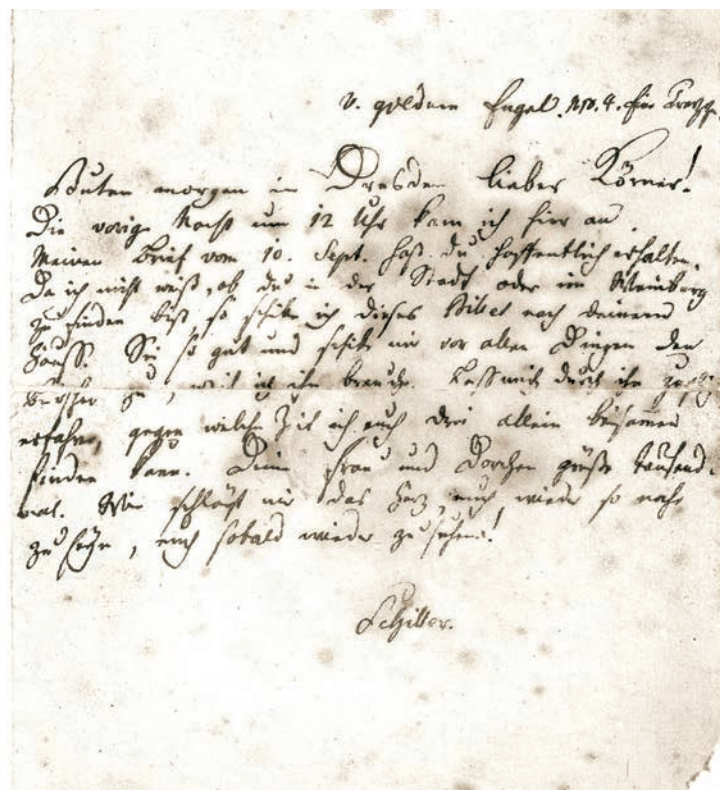 v. goldnen Engel. Nro. 4. Treppe
Guten morgen in Dresden lieber Körner!
Die vorige Nacht um 12 Uhr kam ich hier an.
Meinen Brief vom 10. Sept. hast du hoffentlich erhalten.
Da ich nicht weiß, ob du in der Stadt oder im Weinberg
zu finden bist, so schike ich dieses Billet nach deinem
Hauß. Sei so gut und schike mir vor allen Dingen den
zu, weil ich ihn brauche. Lass mich durch ihn
erfahren, gegen welche Zeit ich euch drei allein beisammen
finden kann. Deine Frau und Dorchen grüße tausend-
mal. Wie schlägt mir das Herz, euch wieder so nahe
zu seyn, euch sobald wieder zu sehen!
Schiller.